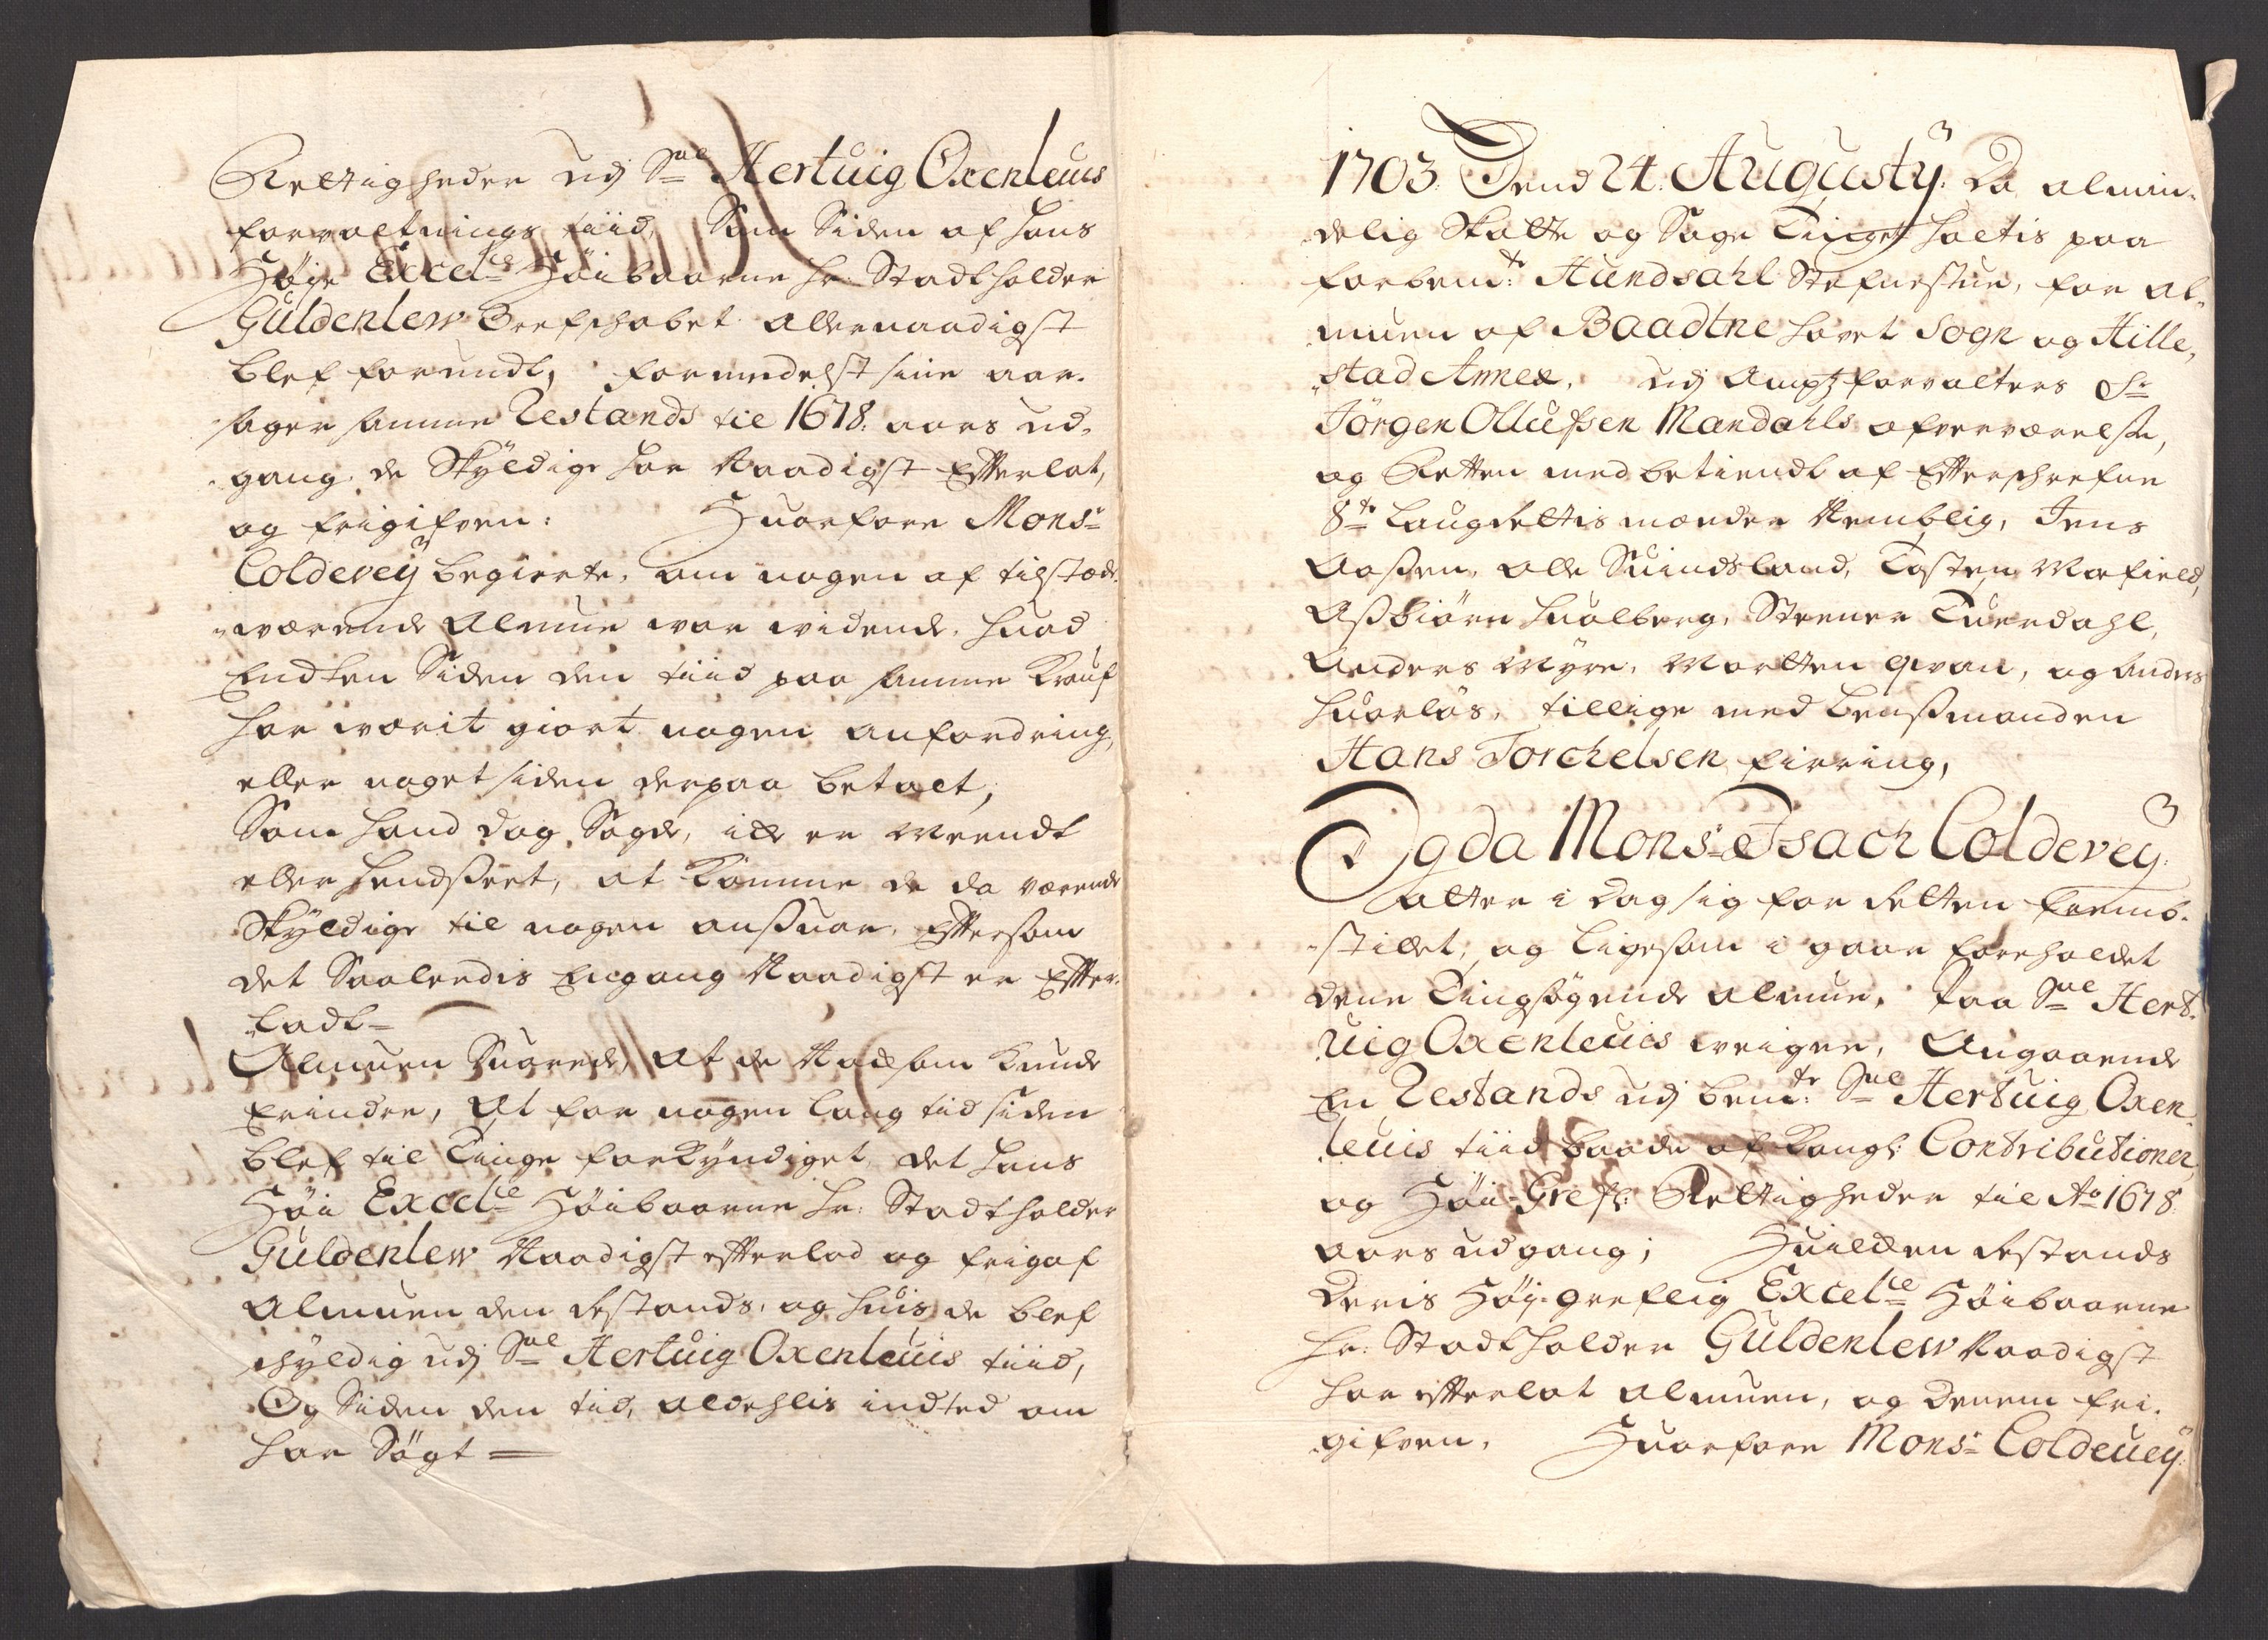 Rettigheder udj Sal Hertuig Oxenleuis
forvaltnings tiid, Som Siden af hans
Høje Excel:ce Høibaarne Hr: Stadtholder
Guldenlew Grefschabet allernaadigst
blef forundt, formedelst sine aar-
sager samme Restands til 1678. aars ud-
gang de Skyldige har Naadigst Efterlat,
og frigifven: Huorfore Monsr
Coldevey begierte, om nogen af tilstæde-
værende Almue var vidende, huad
Endten Siden den tiid paa samme Krauf
har værit giort nogen anfordring,
eller noget siden derpaa betalt,
Som hand dog Sagde, icke er meendt
eller hendseet, at komme de da værende
Skyldige til nogen ansuar, Eftersom
det Saaledis Engang Naadigst er Efter-
ladt-
Almuen Suarede, At de Nock som kunde
Erindre, At for nogen lang tid siden
blef til Tinge forkyndiget, det hans
Høi Excel:ce Høibaarne Hr: Stadtholder
Guldenlew Naadigst efterlod og frigaf
Almuen den Restands, og huis de blef
schyldig udj Sal Hertuig Oxenleuis tiid,
Og Siden den tid, aldehlis indted om
har Søgt=
1703. Dend 24. Augusty. Da almin-
delig Skatte og Sage Tinget holtis paa
forbemte: Hundsahl Stefnestue, for Al-
muen af Baadtne hovet Sogn og Hille-
stad Annex, udj Amptzforvalters Sr
Jörgen Ollufsen Mandahls ofverværelse,
og Retten med betiendt af Efterschrefne
8te Laugrettis mænder Nemblig, Jens
Aassen, Olle Suindsland, Tosten Mofield,
Assbiørn Hualberg, Steener Tuerdahl,
Anders Myre, Morten Qvan, og Anders
Huorløs, tillige med Lensmanden
Hans Torchelsen Firring,
Og da Monsr Isach Coldevey.
atter i Dag sig for Retten fremb-
stillet, og ligesom i gaar foreholdet
denne Tingsøgende Almue, Paa Sal Hert-
uig Oxenleuis veigne, Angaaende
En Restands udj bemte: Sal Hertuig Oxen-
leuis tiid baade af Kongl: Contributioner,
og Høi-Grefl: Rettigheder til Ao 1678.
aars udgang; Huilcken Restands
Deris Høj-greflig Excelce Høibaarne
Hr: Stadtholder Guldenlew Naadigst
har efterlat Almuen, og dennem fri-
gifven. Huorfore Monsr Coldeuey